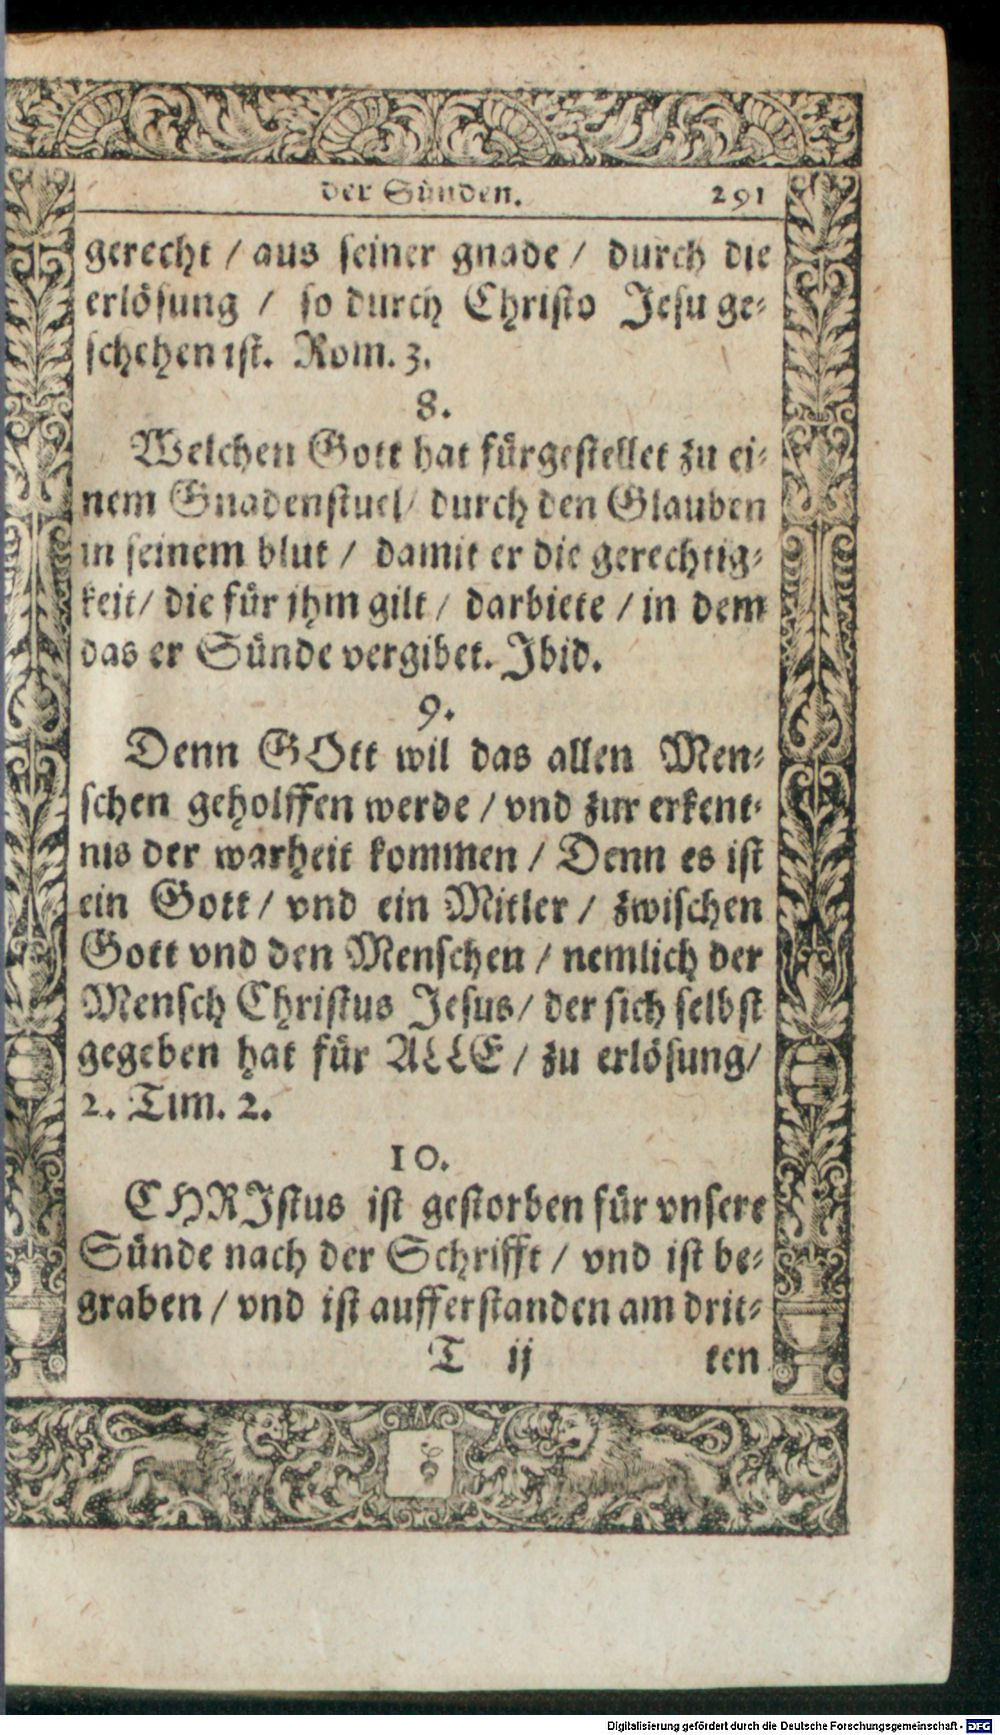 der Sünden. 291
gerecht / aus seiner gnade / durch die
erlösung / so durch Christo Jesu ge-
schehen ist. Rom. 3.
8.
Welchen Gott hat fürgestellet zu ei-
nem Gnadenstuel / durch den Glauben
in seinem blut / damit er die gerechtig-
keit / die für jhm gilt / darbiete / in dem
das er Sünde vergibet. Ibid.
9.
Denn GOtt wil das allen Men-
schen geholffen werde / vnd zur erkent-
nis der warheit kommen / Denn es ist
ein Gott / vnd ein Mitler / zwischen
Gott vnd den Menschen / nemlich der
Mensch Christus Jesus / der sich selbst
gegeben hat für ALLE / zu erlösung /
2. Tim. 2.
10.
CHRIstus ist gestorben für vnsere
Sünde nach der Schrifft / vnd ist be-
graben / vnd ist aufferstanden am drit-
T ij ten
Digitalisierung gefördert durch die Deutsche Forschungsgemeinschaft - DFG